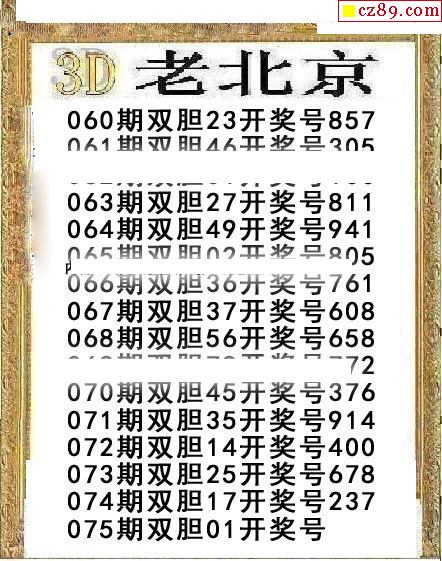 cz89.com
3D 老北京
060期双胆23开奖号857
061期双胆46开奖号305
063期双胆27开奖号811
064期双胆49开奖号941
065期双胆02开奖号805
066期双胆36开奖号761
067期双胆37开奖号608
068期双胆56开奖号658
070期双胆45开奖号376
071期双胆35开奖号914
072期双胆14开奖号400
073期双胆25开奖号678
074期双胆17开奖号237
075期双胆01开奖号